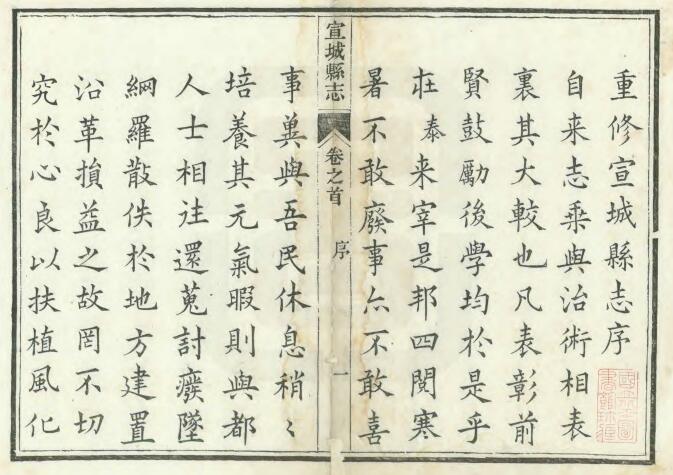 重修宣城縣志序
自来志乘與治術相表
裏其大較也凡表彰前
賢鼓勵後學均於是乎
在泰来宰是邦四閱寒
暑不敢廢事亦不敢喜
宣城縣志
卷之首
序
一
事兾與吾民休息稍〻
培養其元氣暇則與都
人士相往還蒐討癈墜
網羅散佚於地方建置
沿革損益之故罔不切
究於心良以扶植風化